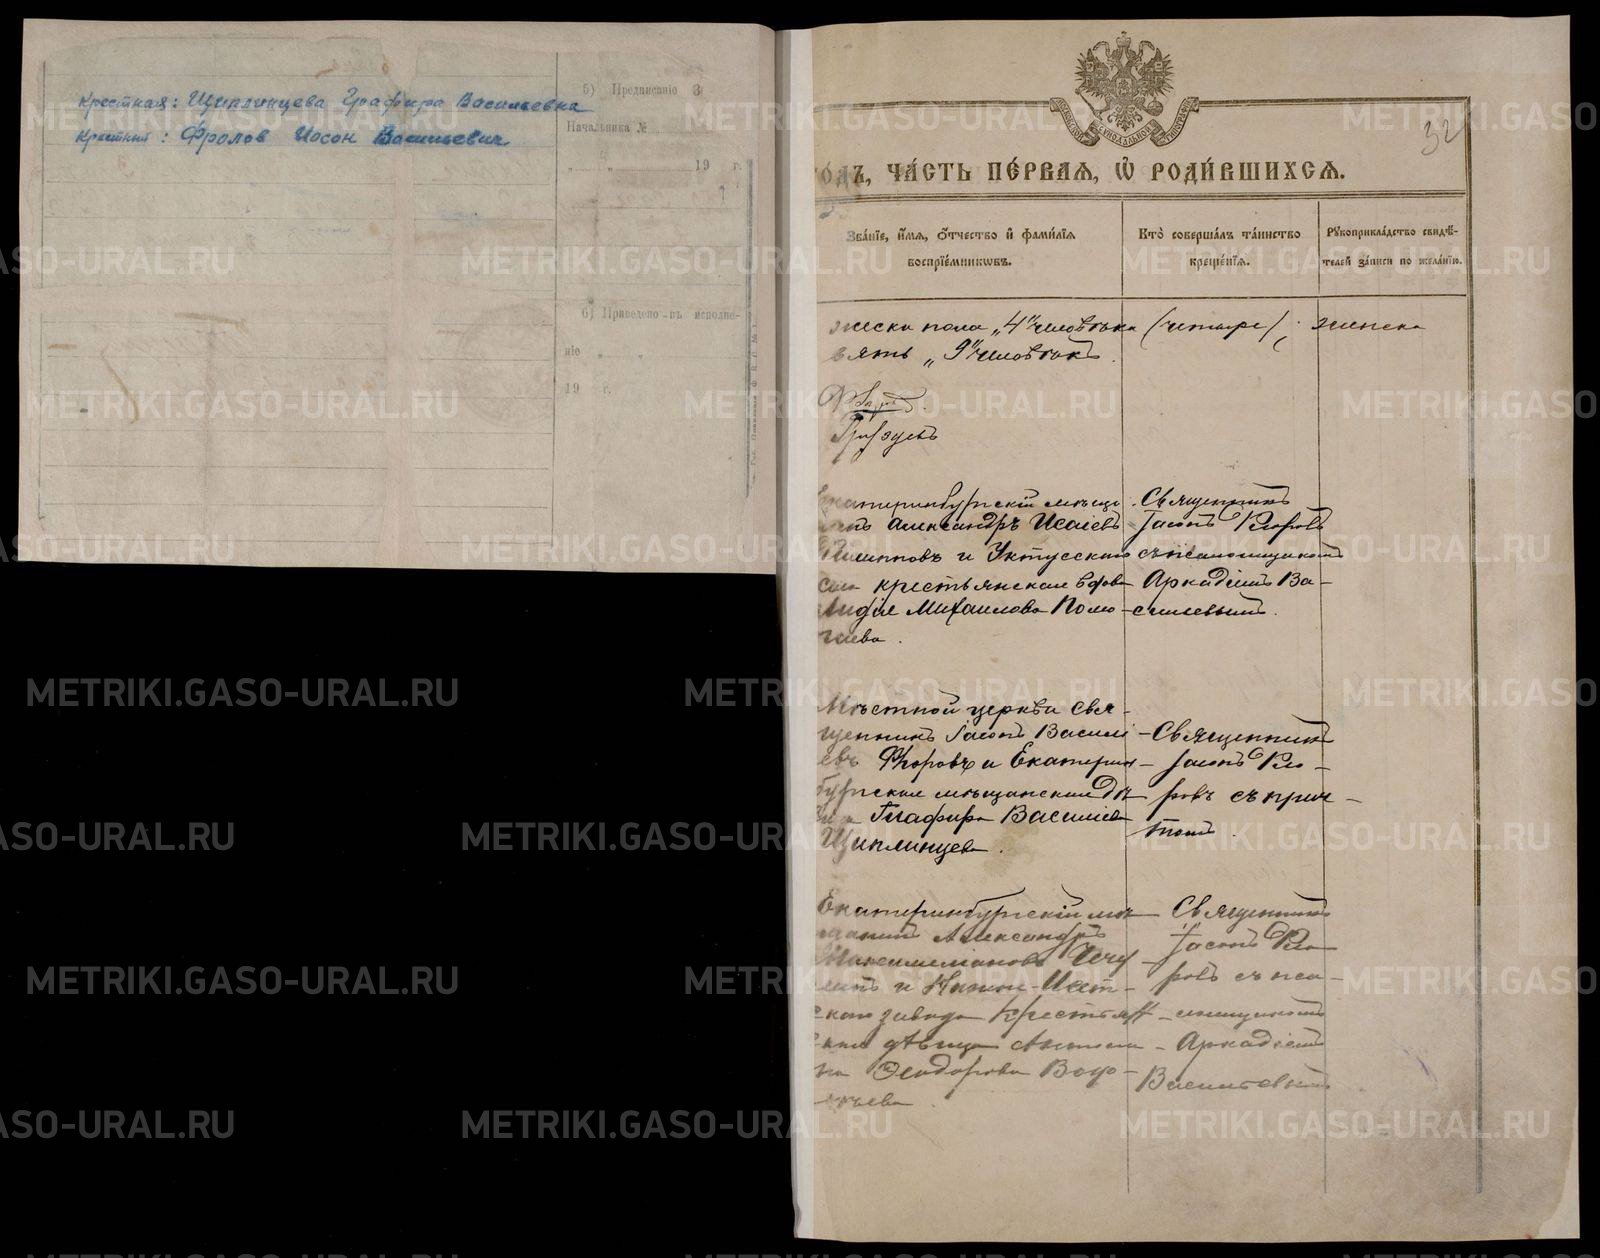 крестная: Щиплинцева Графира Васильевна
крестный: Фролов Иосон Васильевич
5) Предписаніе
Начальника №
19 г.
6) Приведено въ исполне-
ніе
19 г.
32
годъ, ча́сть пе́рвая, ѡ҆ роди́вшихся.
Зва́ніе, и҆́мя, ѻ҆́тчество и҆ фами́лія
воспріе́мникѡвъ.
Кто̀ соверша́лъ та́инство
креще́нія.
Рꙋкоприкла́дство свидѣ́-
телей за́писи по жела́нію.
жеска пола „4" человѣка (четыре), женска
вять „9" человѣкъ.
Екатеринбургскій мѣща
Александръ Исаіевъ
Филипповъ и Уктусскаго
села крестьянская вдова
Лидія Михаилова Полю-
гаева.
Священникъ
Іасонъ Флоровъ
съ псаломщикомъ
Аркадіемъ Ва-
сильевымъ.
Мѣстной церкви свя-
щенникъ Іасонъ Василі
евъ Флоровъ и Екатерин-
бургская мѣщанская дѣ
вица Глафира Василіева
Щиплинцева.
Священникъ
Іасонъ Фло-
ровъ съ прич-
томъ.
Екатеринбургскій мѣ
щанинъ Александръ
Максимиліановъ
и Нижне-Исет-
скаго завода крестьян-
ская дѣвица Антони
на Ѳеодорова
Священникъ
Іасонъ Фло-
ровъ съ пса-
ломщикомъ
Аркадіемъ
Васильевымъ
METRIKI.GASO-URAL.RU